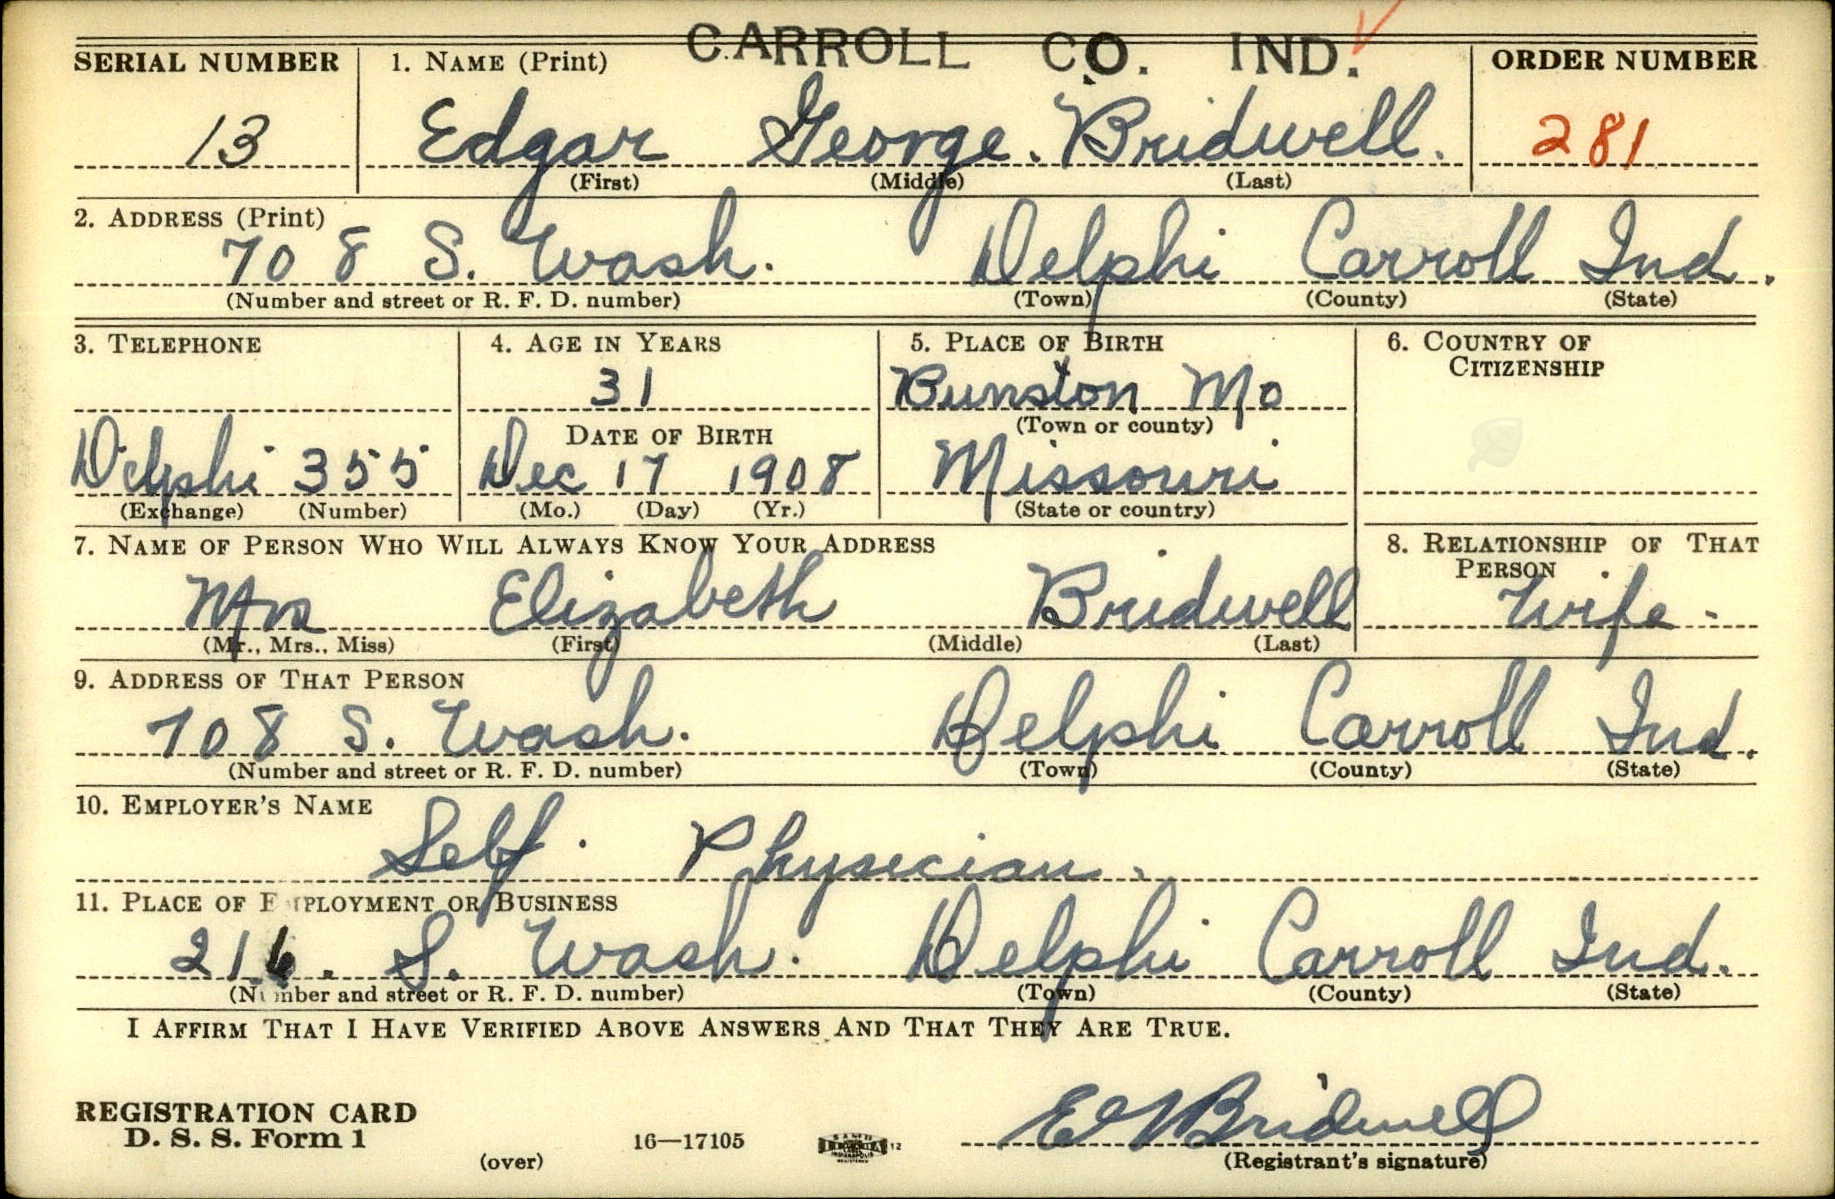 CARROLL CO. IND.
SERIAL NUMBER 1. NAME (Print) ORDER NUMBER
13 Edgar George. Bridwell. 281
(First) (Middle) (Last)
2. ADDRESS (Print)
708 S. Wash. Delphi Carroll Ind.
(Number and street or R. F. D. number) (Town) (County) (State)
3. TELEPHONE 4. AGE IN YEARS 5. PLACE OF BIRTH 6. COUNTRY OF CITIZENSHIP
31 Bunston Mo
DATE OF BIRTH (Town or county)
Delphi 355 Dec 17 1908 Missouri
(Exchange) (Number) (Mo.) (Day) (Yr.) (State or country)
7. NAME OF PERSON WHO WILL ALWAYS KNOW YOUR ADDRESS 8. RELATIONSHIP OF THAT PERSON
Mrs Elizabeth Bridwell Wife -
(Mr., Mrs., Miss) (First) (Middle) (Last)
9. ADDRESS OF THAT PERSON
708 S. Wash. Delphi Carroll Ind.
(Number and street or R. F. D. number) (Town) (County) (State)
10. EMPLOYER'S NAME
Self. Physician.
11. PLACE OF EMPLOYMENT OR BUSINESS
216. S. Wash. Delphi Carroll Ind.
(Number and street or R. F. D. number) (Town) (County) (State)
I AFFIRM THAT I HAVE VERIFIED ABOVE ANSWERS AND THAT THEY ARE TRUE.
REGISTRATION CARD
D. S. S. Form 1
(over) 16—17105 12 E G Bridwell
(Registrant's signature)